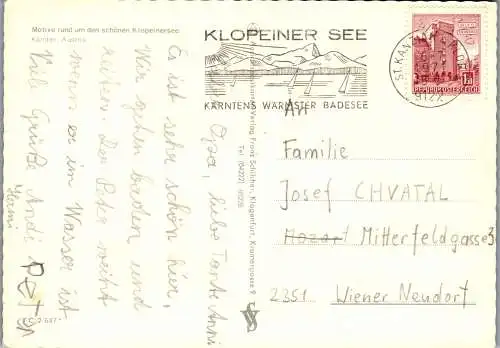 Motive rund um den schönen Klopeinersee
Kärnten, Austria
KLOPEINER SEE
KÄRNTENS WÄRMSTER BADESEE
ST. KANZIAN
9122
REPUBLIK ÖSTERREICH
Opa, liebe Tante Anni
Es ist sehr schön hier,
Wir gehen baden und
Der Peter weiht
wenn er im Wasser ist
Viele Grüße Andi
Peter
Verlag Franz Schilcher, Klagenfurt, Kranzmayerstr. 9
Tel. (04222)
An
Familie
Josef CHVATAL
Mozart Mitterfeldgasse 3
2351 Wiener Neudorf